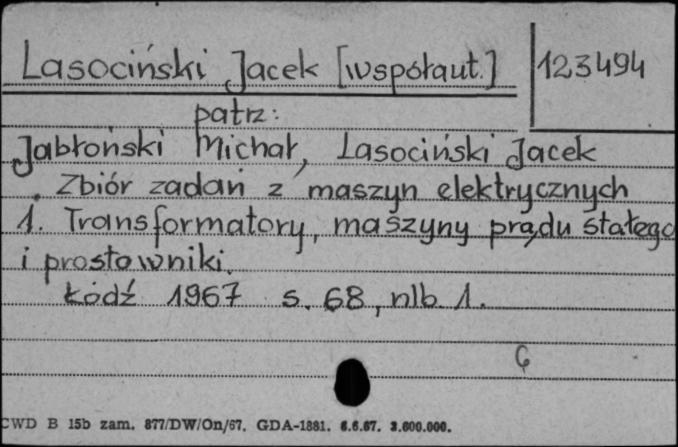 Lasociński Jacek [współaut.] 123494
patrz:
Jabłoński Michał, Lasociński Jacek
Zbiór zadań z maszyn elektrycznych
1. Transformatory, maszyny prądu stałego
i prostowniki.
Łódź 1967 s. 68, nlb. 1.
CWD B 15b zam. 877/DW/On/67. GDA-1881. 6.6.67. 3.600.000.